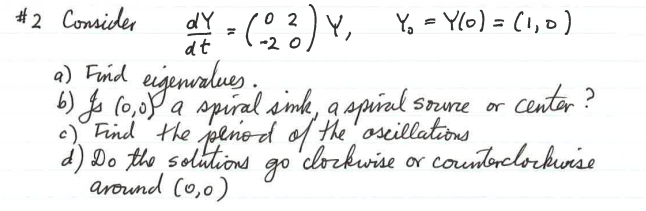 #2 Consider dY/dt = (0 2 / -2 0) Y, Y₀ = Y(0) = (1,0)
a) Find eigenvalues.
b) Is (0,0) a spiral sink, a spiral source or center?
c) Find the period of the oscillations
d) Do the solutions go clockwise or counterclockwise
around (0,0)